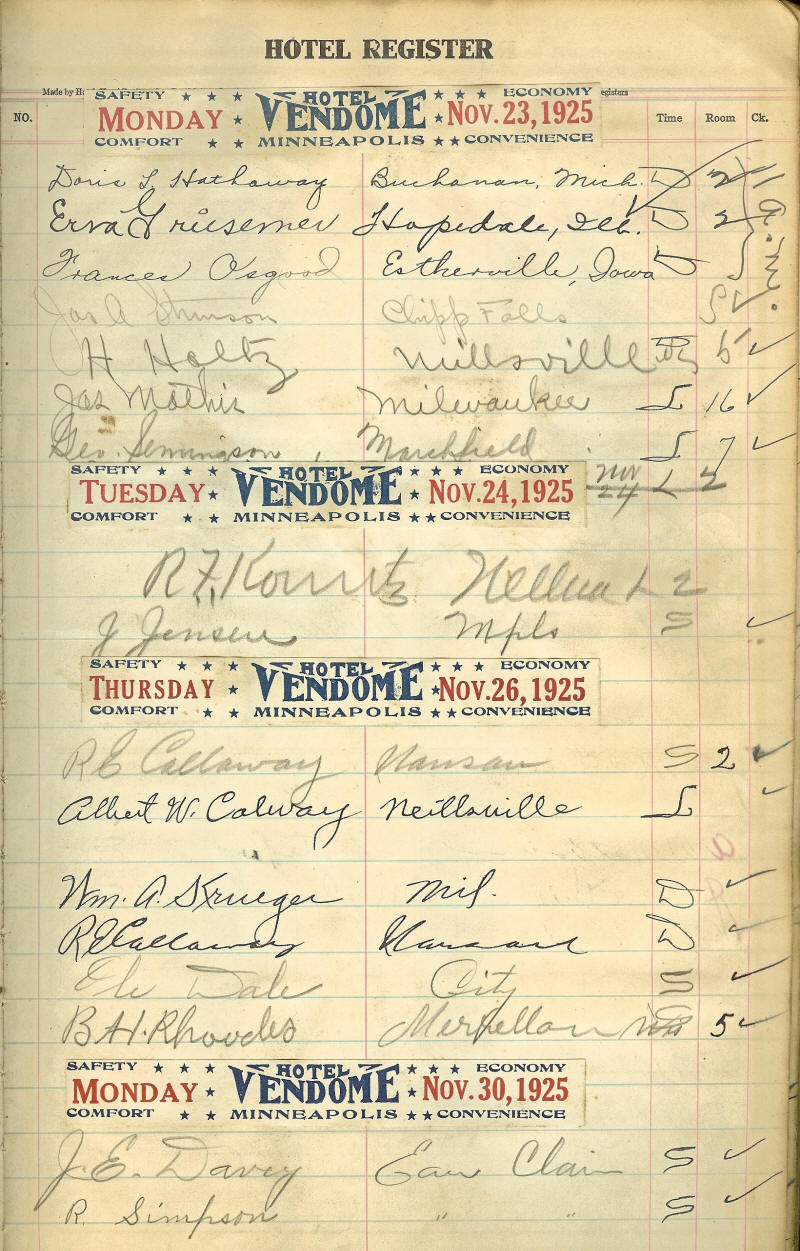 HOTEL REGISTER
Made by H registers
NO. Time Room Ck.
SAFETY ★ ★ ★ HOTEL ★ ★ ★ ECONOMY
MONDAY ★ VENDOME ★ NOV. 23, 1925
COMFORT ★ ★ MINNEAPOLIS ★ ★ CONVENIENCE
Doris L. Hathaway Buchanan, Mich. D 2
Erva Griesemer Hopedale, Ill. D 2
Frances Osgood Estherville, Iowa D
Jas A Stinson Chipp Falls
H Holtz 5 ✓
Jas Mathis Milwaukee L 16 ✓
Geo. Marshfield L 7 ✓
Nov 24 L 2
SAFETY ★ ★ ★ HOTEL ★ ★ ★ ECONOMY
TUESDAY ★ VENDOME ★ NOV. 24, 1925
COMFORT ★ ★ MINNEAPOLIS ★ ★ CONVENIENCE
R.F. L 2
J Jensen Mpls S ✓
SAFETY ★ ★ ★ HOTEL ★ ★ ★ ECONOMY
THURSDAY ★ VENDOME ★ NOV. 26, 1925
COMFORT ★ ★ MINNEAPOLIS ★ ★ CONVENIENCE
R E Callaway S 2 ✓
Albert W. Calway Neillsville L ✓
Wm. A. Krueger Mil. D ✓
R E Callaway D ✓
Dale City S ✓
B.H. Rhoades Merrellan 5 ✓
SAFETY ★ ★ ★ HOTEL ★ ★ ★ ECONOMY
MONDAY ★ VENDOME ★ NOV. 30, 1925
COMFORT ★ ★ MINNEAPOLIS ★ ★ CONVENIENCE
J. E. Davey Eau Clair S ✓
R. Simpson " " S ✓